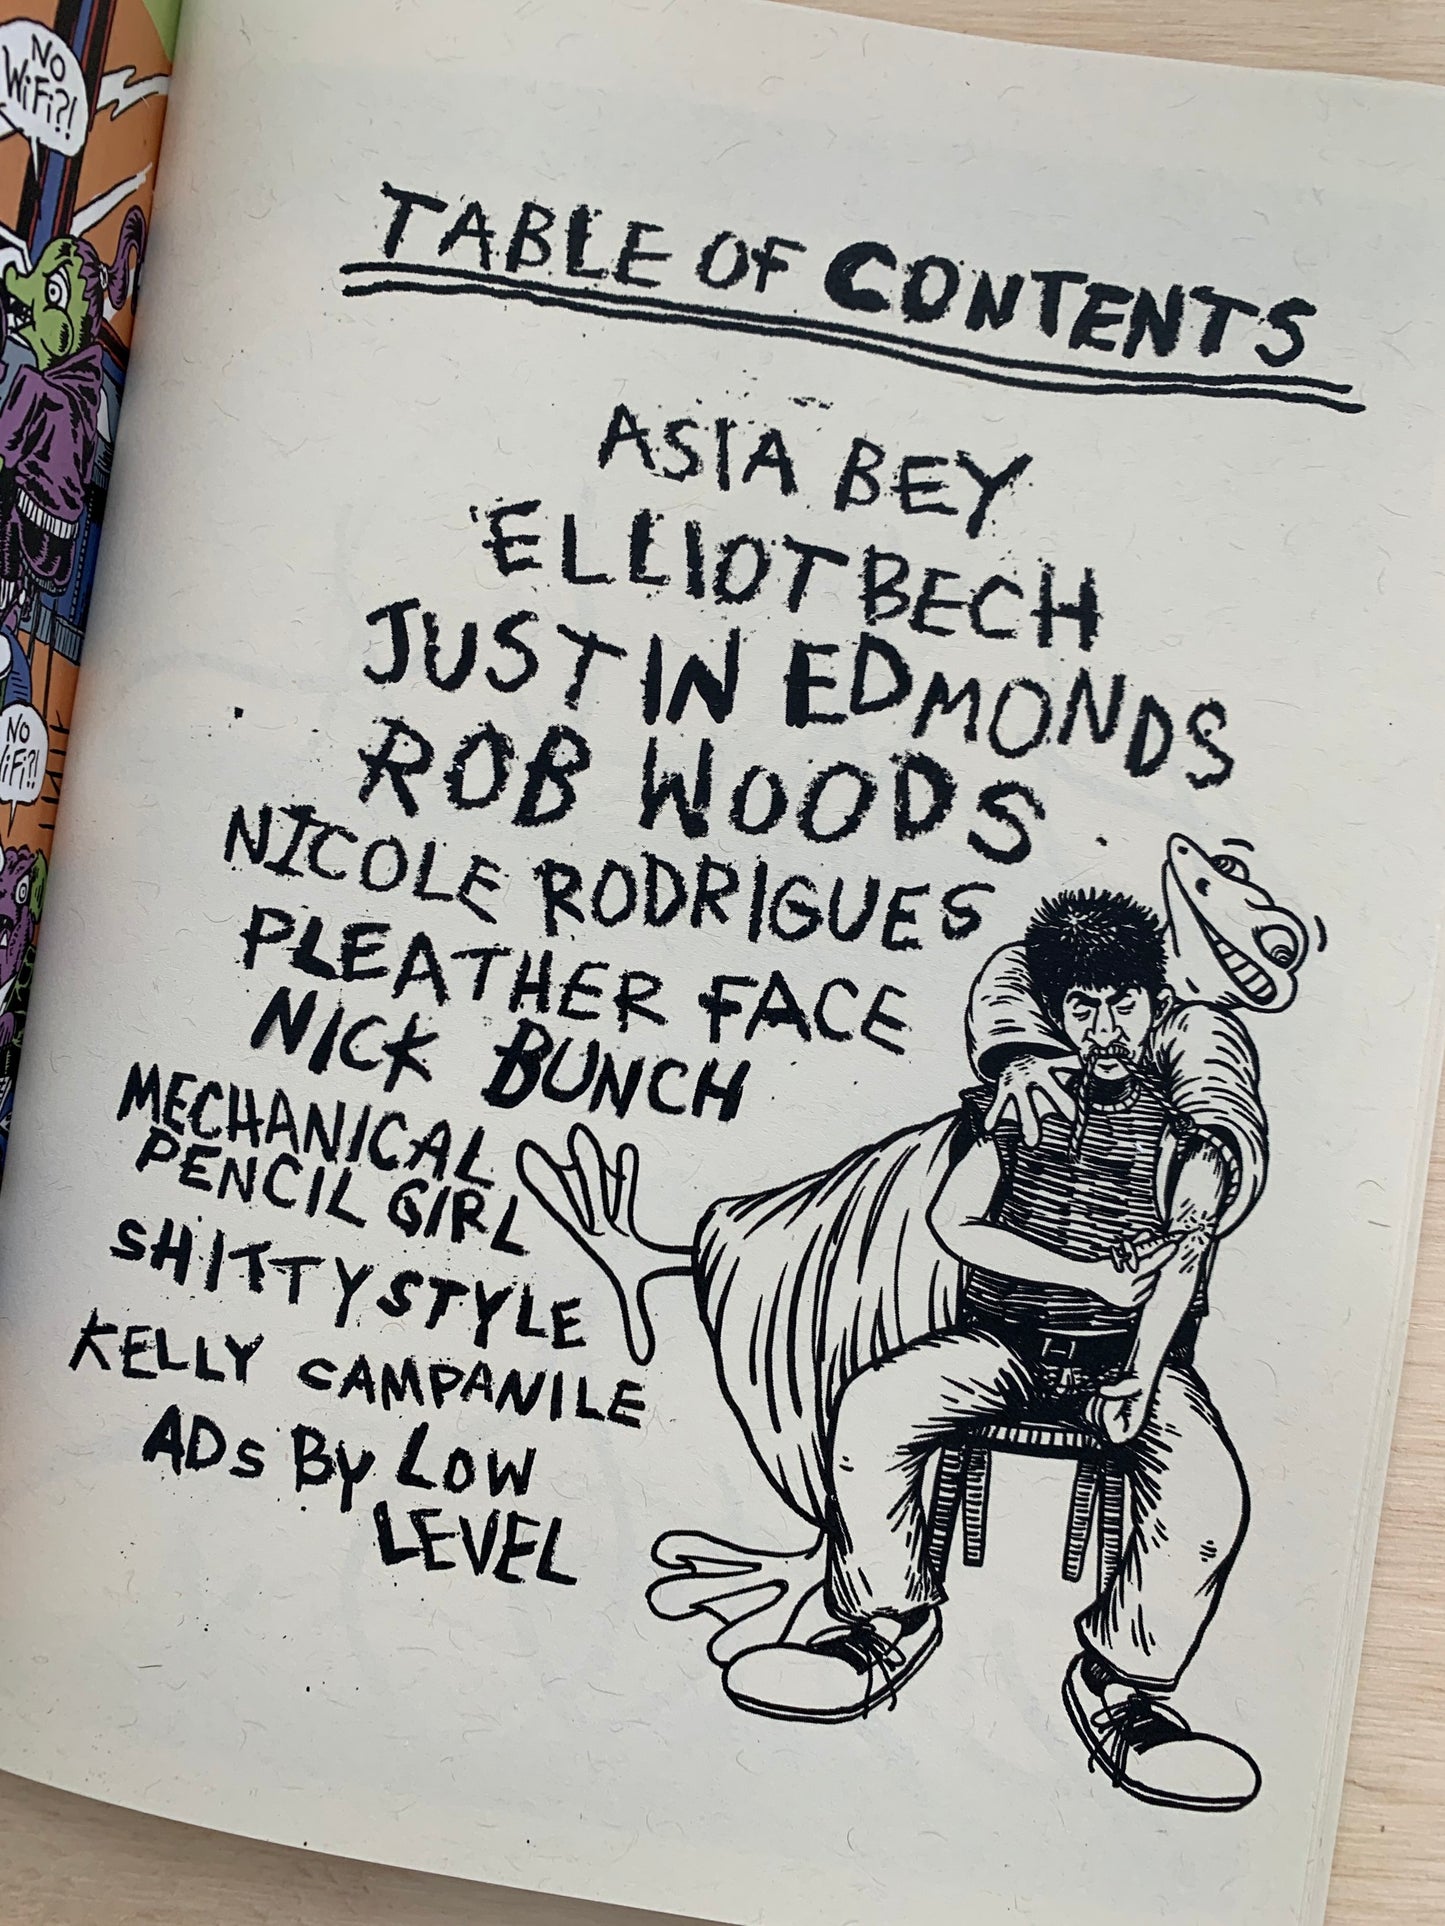 NO
WiFi?!
NO
WiFi?!
TABLE OF CONTENTS
ASIA BEY
ELLIOT BECH
JUSTIN EDMONDS
ROB WOODS
NICOLE RODRIGUES
PLEATHER FACE
NICK BUNCH
MECHANICAL
PENCIL GIRL
SHITTYSTYLE
KELLY CAMPANILE
ADs By LOW
LEVEL